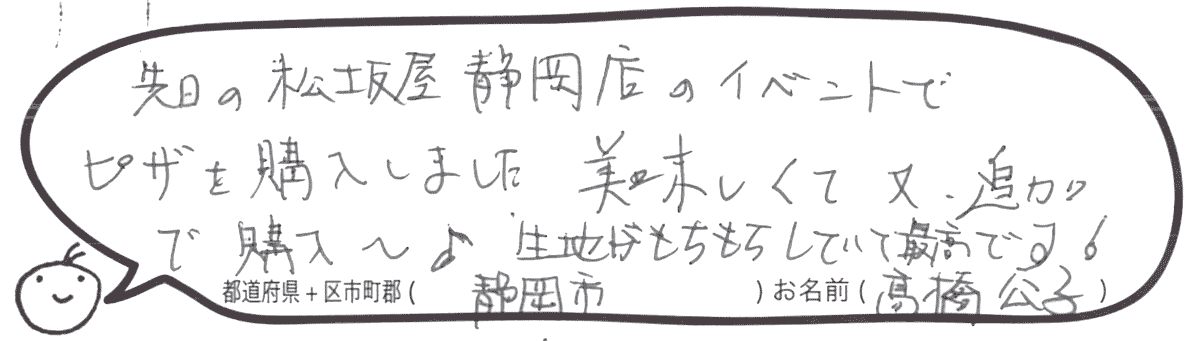 先日の松坂屋静岡店のイベントで
ピザを購入しました 美味しくて又、追加
で購入〜♪ 生地がもちもちしていて最高です!
都道府県+区市町郡( 静岡市 )お名前( 髙橋公子 )